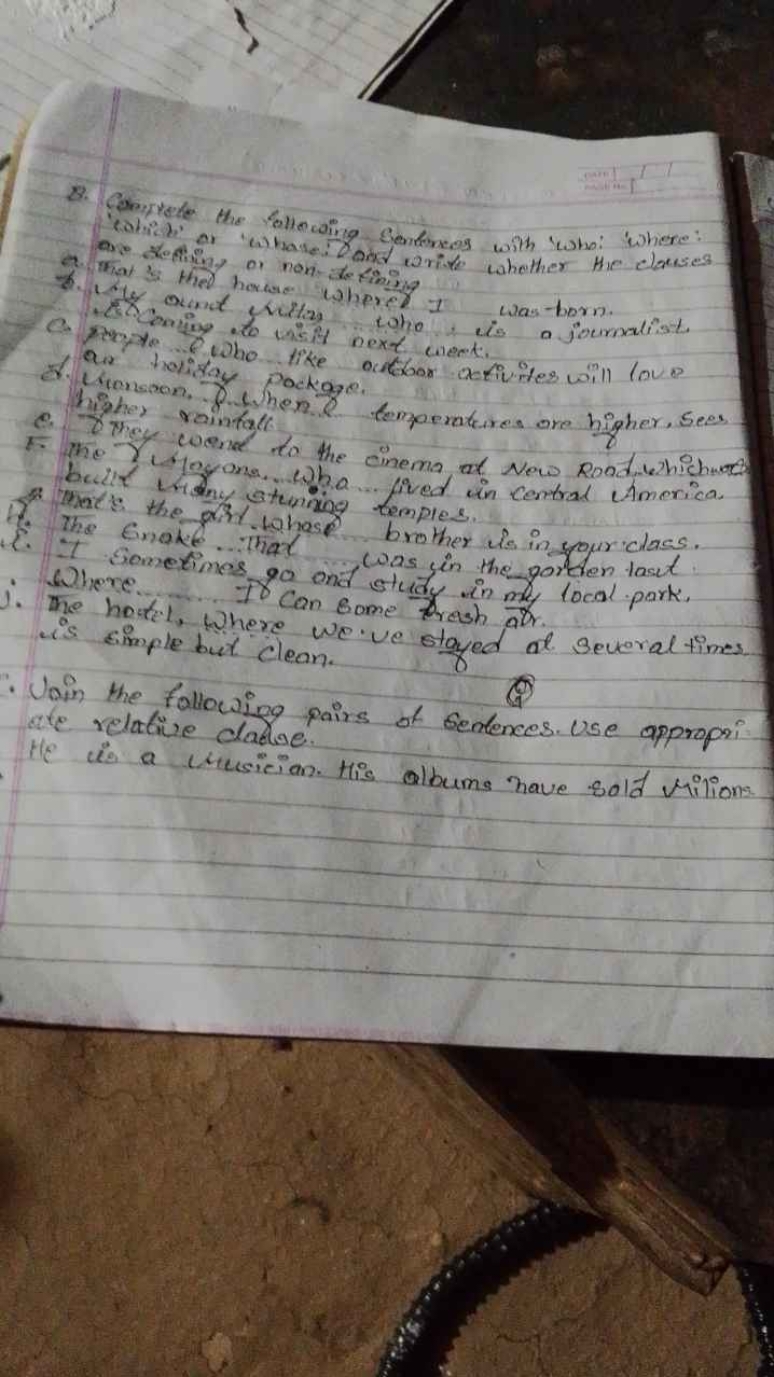 B. Complete the following Sentences with 'who', 'where',
'which' or 'whose' and write whether the clauses
are defining or non-defining
a. That's the house where I was born.
b. My who is a journalist
is coming to visit next week.
c. people who like outdoor activites will love
our holiday package.
d. Monsoon, When temperatures are higher, sees
higher rainfall
e. They wend to the cinema at New Road which
F. The Mayans who lived in Central America
built many stunning temples.
g. That's the girl whose brother is in your class.
H. The Snake That was in the garden last
i. I Sometimes go and study in my local park,
Where I Can Some fresh air.
j. The hostel, Where we've stayed at Several times
is simple but clean.
Join the following pairs of Sentences. Use appropri
ate relative clause.
He is a Musician. His albums have sold Milions